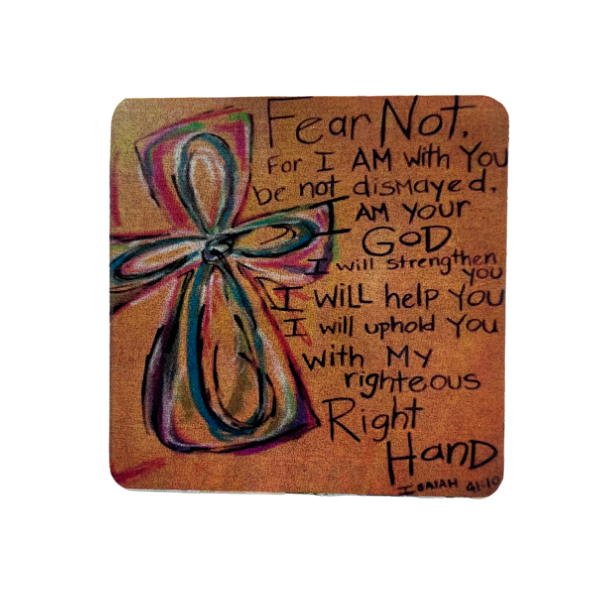 Fear Not,
For I AM with You
be not dismayed,
I AM your
GOD
I will strengthen
you
I WILL help YOU
I will uphold YOU
with MY
righteous
Right
HanD
ISAIAH 41:10